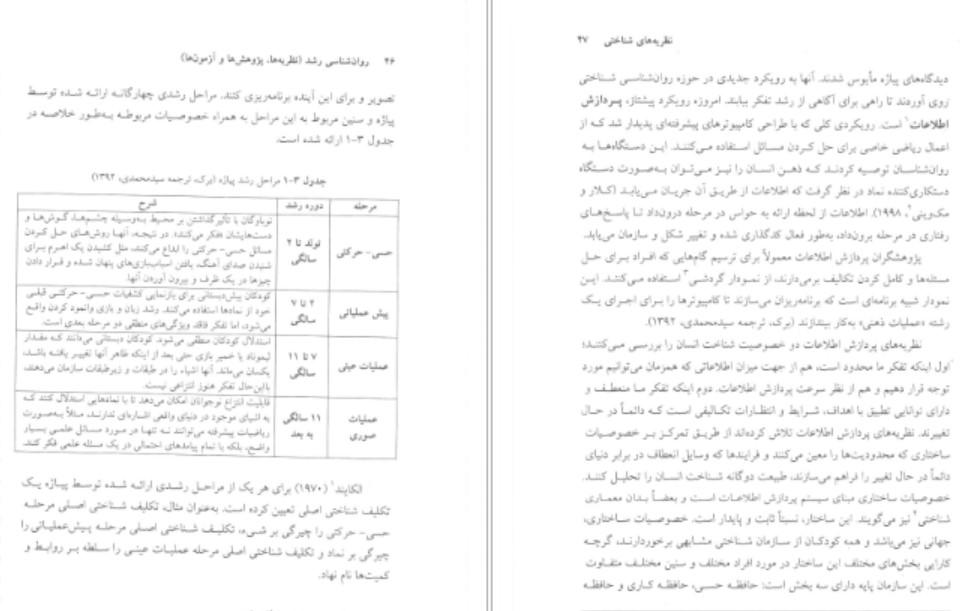 ۴۶ روان‌شناسی رشد (نظریه‌ها، پژوهش‌ها و آزمون‌ها)
تصویر و برای این آینده برنامه‌ریزی کنند. مراحل رشدی چهارگانه ارائه شده توسط
پیاژه و سنین مربوط به این مراحل به همراه خصوصیات مربوطه به‌طور خلاصه در
جدول ۳-۱ ارائه شده است.
جدول ۳-۱ مراحل رشد پیاژه (برک، ترجمه سیدمحمدی، ۱۳۹۲)
مرحله دوره رشد شرح
حسی- حرکتی
تولد تا ۲
سالگی
نوباوگان با تأثیرگذاشتن بر محیط به‌وسیله چشم‌ها، گوش‌ها و
دست‌هایشان «فکر می‌کنند». در نتیجه، آنها روش‌های حل کردن
مسائل حسی- حرکتی را ابداع می‌کنند، مثل کشیدن یک اهرم برای
شنیدن صدای آهنگ، یافتن اسباب‌بازی‌های پنهان شده و قرار دادن
چیزها در یک ظرف و بیرون آوردن آنها.
پیش عملیاتی
۲ تا ۷
سالگی
کودکان پیش‌دبستانی برای بازنمایی کشفیات حسی- حرکتی قبلی
خود از نمادها استفاده می‌کنند. رشد زبان و بازی وانمود کردن واقع
می‌شود، اما تفکر فاقد ویژگی‌های منطقی دو مرحله بعدی است.
عملیات عینی
۷ تا ۱۱
سالگی
استدلال کودکان منطقی می‌شود. کودکان دبستانی می‌دانند که مقدار
لیموناد یا خمیر بازی حتی بعد از اینکه ظاهر آنها تغییر یافته باشد،
یکسان می‌ماند. آنها اشیاء را در طبقات و زیرطبقات سازمان می‌دهند،
بااین‌حال تفکر هنوز انتزاعی نیست.
عملیات
صوری
۱۱ سالگی
به بعد
قابلیت انتزاع نوجوانان امکان می‌دهد تا با نمادهایی استدلال کنند که
به اشیای موجود در دنیای واقعی اشاره‌ای ندارند، مثلاً به‌صورت
ریاضیات پیشرفته می‌توانند نه تنها در مورد مسائل علمی بسیار
واضح، بلکه با تمام پیامدهای احتمالی در یک مسئله علمی فکر کنند.
الکایند۱ (۱۹۷۰) برای هر یک از مراحل رشدی ارائه شده توسط پیاژه یک
تکلیف شناختی اصلی تعیین کرده است. به‌عنوان مثال، تکلیف شناختی اصلی مرحله
حسی- حرکتی را چیرگی بر شیء، تکلیف شناختی اصلی مرحله پیش‌عملیاتی را
چیرگی بر نماد و تکلیف شناختی اصلی مرحله عملیات عینی را سلطه بر روابط و
کمیت‌ها نام نهاد.
نظریه‌های شناختی ۴۷
دیدگاه‌های پیاژه مأیوس شدند. آنها به رویکرد جدیدی در حوزه روان‌شناسی شناختی
روی آوردند تا راهی برای آگاهی از رشد تفکر بیابند. امروزه رویکرد پیشتاز، پردازش
اطلاعات۱ است. رویکردی کلی که با طراحی کامپیوترهای پیشرفته‌ای پدیدار شد که از
اعمال ریاضی خاصی برای حل کردن مسائل استفاده می‌کنند. این دستگاه‌ها به
روان‌شناسان توصیه کردند که ذهن انسان را نیز می‌توان به‌صورت دستگاه
دستکاری‌کننده نماد در نظر گرفت که اطلاعات از طریق آن جریان می‌یابد (کلار و
مک‌وینی۲، ۱۹۹۸). اطلاعات از لحظه ارائه به حواس در مرحله درون‌داد تا پاسخ‌های
رفتاری در مرحله برون‌داد، به‌طور فعال کدگذاری شده و تغییر شکل و سازمان می‌یابد.
پژوهشگران پردازش اطلاعات معمولاً برای ترسیم گام‌هایی که افراد برای حل
مسئله‌ها و کامل کردن تکالیف برمی‌دارند، از نمودار گردشی۳ استفاده می‌کنند. این
نمودار شبیه برنامه‌ای است که برنامه‌ریزان می‌سازند تا کامپیوترها را برای اجرای یک
رشته «عملیات ذهنی» به‌کار بیندازند (برک، ترجمه سیدمحمدی، ۱۳۹۲).
نظریه‌های پردازش اطلاعات دو خصوصیت شناخت انسان را بررسی می‌کنند؛
اول اینکه تفکر ما محدود است، هم از جهت میزان اطلاعاتی که همزمان می‌توانیم مورد
توجه قرار دهیم و هم از نظر سرعت پردازش اطلاعات. دوم اینکه تفکر ما منعطف و
دارای توانایی تطبیق با اهداف، شرایط و انتظارات تکالیفی است که دائماً در حال
تغییرند. نظریه‌های پردازش اطلاعات تلاش کرده‌اند از طریق تمرکز بر خصوصیات
ساختاری که محدودیت‌ها را معین می‌کنند و فرایندها که وسایل انعطاف در برابر دنیای
دائماً در حال تغییر را فراهم می‌سازند، طبیعت دوگانه شناخت انسان را تحلیل کنند.
خصوصیات ساختاری مبنای سیستم پردازش اطلاعات است و بعضاً بدان معماری
شناختی۴ نیز می‌گویند. این ساختار، نسبتاً ثابت و پایدار است. خصوصیات ساختاری،
جهانی نیز می‌باشد و همه کودکان از سازمان شناختی مشابهی برخوردارند، گرچه
کارایی بخش‌های مختلف این ساختار در مورد افراد مختلف و سنین مختلف متفاوت
است. این سازمان پایه دارای سه بخش است: حافظه حسی، حافظه کاری و حافظه